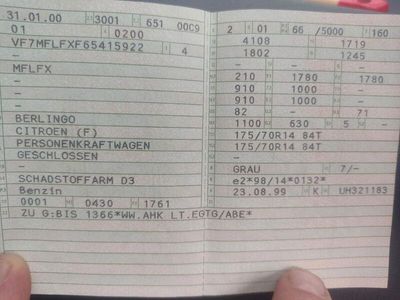 31.01.00 3001 651 00C9
01 0200
VF7MFLFXF65415922 4
-
MFLFX
-
-
BERLINGO
CITROEN (F)
PERSONENKRAFTWAGEN
GESCHLOSSEN
-
SCHADSTOFFARM D3
Benzin
0001 0430 1761
2 01 66 /5000 160
4108 1719
1802 1245
- - -
210 1780 1780
910 1000 -
910 1000 -
82 - 71
1100 630 5 -
175/70R14 84T
175/70R14 84T
-
-
GRAU 7/-
e2*98/14*0132*
23.08.99 K UH321183
ZU G:BIS 1366*WW.AHK LT.EGTG/ABE*